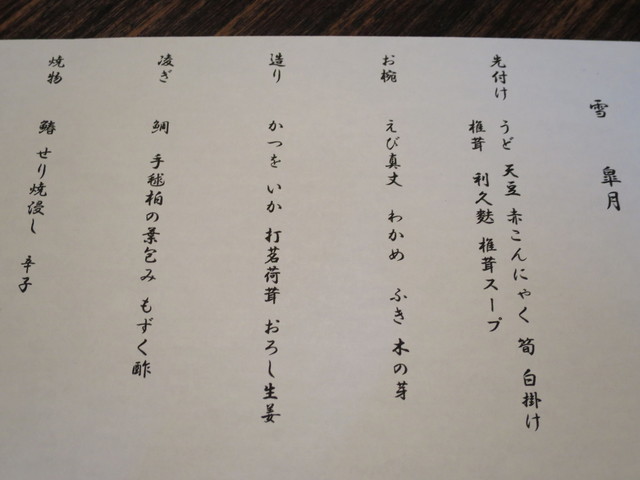 雪　皐月
先付け　うど　天豆　赤こんにゃく　筍　白掛け
椎茸　利久麩　椎茸スープ
お椀　えび真丈　わかめ　ふき　木の芽
造り　かつを　いか　打茗荷茸　おろし生姜
凌ぎ　鯛　手毬柏の葉包み　もずく酢
焼物　鰆　せり焼浸し　辛子